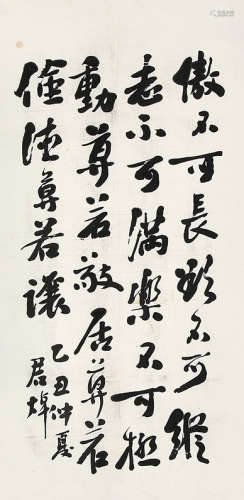 傲不可長欲不可縱
志不可滿樂不可極
動莫若敬居莫若
儉德莫若讓
乙丑仲夏
君焯